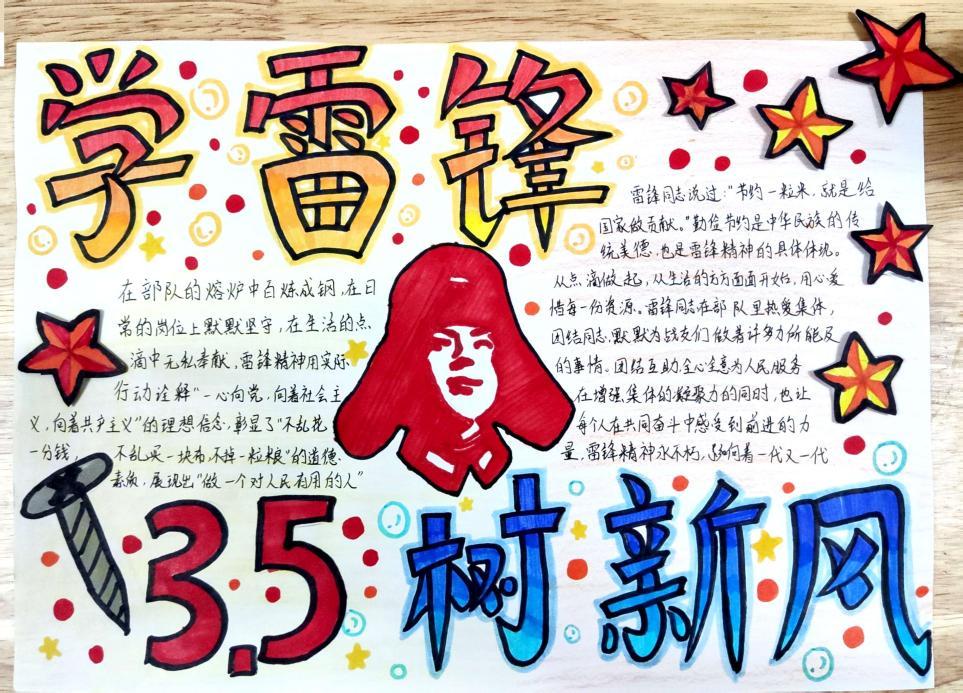 学雷锋
在部队的熔炉中百炼成钢,在日
常的岗位上默默坚守,在生活的点
滴中无私奉献,雷锋精神用实际
行动诠释"一心向党,向着社会主
义,向着共产主义"的理想信念,彰显了"不乱花
一分钱,不乱买一块布,不掉一粒粮"的道德
素质,展现出"做一个对人民有用的人"
雷锋同志说过:"节约一粒米,就是给
国家做贡献。"勤俭节约是中华民族的传
统美德,也是雷锋精神的具体体现。
从点滴做起,从生活的方方面面开始,用心爱
惜每一份资源。雷锋同志在部队里热爱集体,
团结同志,默默为战友们做着许多力所能及
的事情。团结互助,全心全意为人民服务
在增强集体的凝聚力的同时,也让
每个人在共同奋斗中感受到前进的力
量,雷锋精神永不朽,影响着一代又一代
3.5树新风